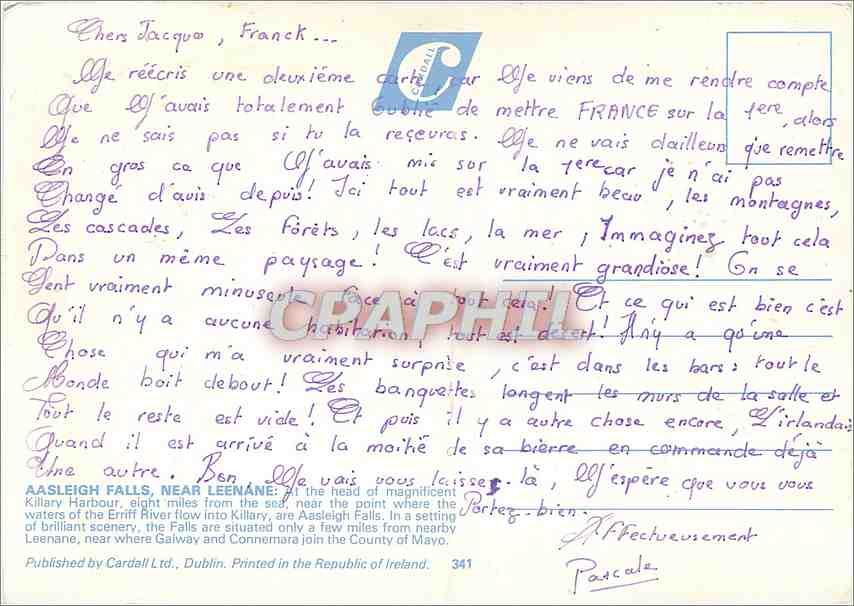 Chers Jacques, Franck...
Je réécris une deuxiéme carte, car Je viens de me rendre compte
Que J'avais totalement oublié de mettre FRANCE sur la 1ere, alors
Je ne sais pas si tu la reçevras. Je ne vais d'ailleurs que remettre
En gros ce que J'avais mis sur la 1ere car je n'ai pas
Changé d'avis depuis! Ici tout est vraiment beau, les montagnes,
Les cascades, Les fôrêts, les lacs, la mer, Immaginez tout cela
Dans un même paysage! C'est vraiment grandiose! On se
Sent vraiment minuscule face à tout cela! Et ce qui est bien c'est
Qu'il n'y a aucune habitation! tout est désert! Il n'y a qu'une
Chose qui m'a vraiment surprise, c'est dans les bars: tout le
Monde boit debout! Les banquettes longent les murs de la salle et
Tout le reste est vide! Et puis il y a autre chose encore, L'irlandais
Quand il est arrivé à la moitié de sa bierre en commande déjà
Une autre. Bon, Je vais vous laisser là, J'espère que vous vous
Portez-bien.
Affectueusement
Pascale
CARDALL
CPAPHIL
AASLEIGH FALLS, NEAR LEENANE: At the head of magnificent
Killary Harbour, eight miles from the sea, near the point where the
waters of the Erriff River flow into Killary, are Aasleigh Falls. In a setting
of brilliant scenery, the Falls are situated only a few miles from nearby
Leenane, near where Galway and Connemara join the County of Mayo.
Published by Cardall Ltd., Dublin. Printed in the Republic of Ireland. 341